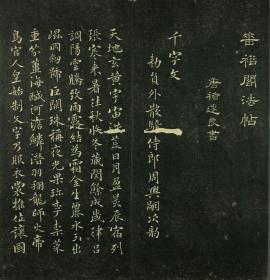 垂裕閣法帖
唐褚遂良書
千字文
勅員外散騎侍郎周興嗣次韵
天地玄黄宇宙荒日月盈昃辰宿列
張寒来暑往秋收冬藏閏餘成歲律吕
調陽雲騰致雨露結為霜金生麗水玉出
崐岡劍號巨闕珠稱夜光果珍李柰菜
重芥薑海鹹河淡鱗潛羽翔龍師火帝
鳥官人皇始制文字乃服衣裳推位讓國